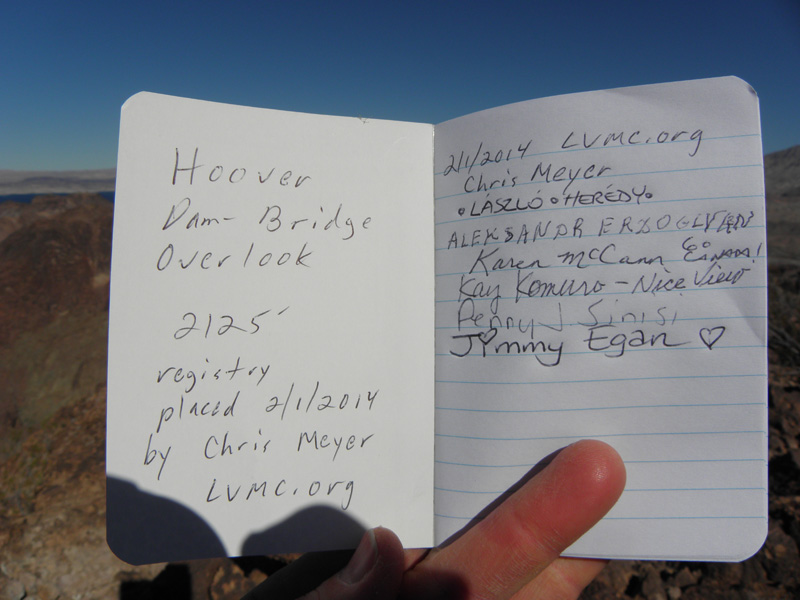 Hoover
Dam- Bridge
Overlook
2125'
registry
placed 2/1/2014
by Chris Meyer
LVMC.org
2/1/2014 LVMC.org
Chris Meyer
•LÁSZLÓ•HERÉDY•
ALEKSANDR
Karen McCann
Kay Komuro - Nice View
Penny J Sinisi
Jimmy Egan ♡